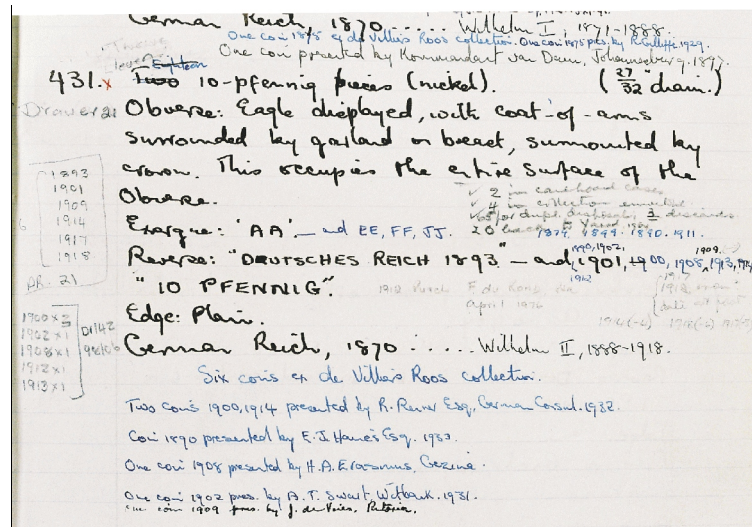 German Reich, 1870 ..... Wilhelm I, 1871-1888.
One coin 1878 ex de Villiers Roos collection. One coin 1875 pres. by R. Cilliffe. 1929.
One coin presented by Kommandant van Dam, Johannesburg. 1897.
Twelve
Eleven Eighteen
431.x Two 10-pfennig pieces (nickel). (27/32" diam.)
Drawer 21
Obverse: Eagle displayed, with coat-of-arms
surrounded by garland on breast, surmounted by
crown. This occupies the entire surface of the
Obverse.
1893
1901
1909
1914
1917
1918
DR. 21
✓ 2 in cardboard cases
✓ 4 in collection
for dupl. disposal, 3 discards
20
Exergue: "AA" — and EE, FF, JJ. 1879 1899 - 1890 - 1911.
Reverse: "DEUTSCHES REICH 1893" — and 1901, 1900, 1908, 1913, 1914
1890, 1902, 1909
1912
1917
"10 PFENNIG".
April 1976
Edge: Plain.
1900 x 2
1902 x 1
1908 x 1
1912 x 1
1913 x 1
D1142
German Reich, 1870 ..... Wilhelm II, 1888-1918.
Six coins ex de Villiers Roos collection.
Two coins 1900, 1914 presented by R. Renner Esq, German Consul. 1932.
Coin 1890 presented by E.J. Haines Esq. 1937.
One coin 1908 presented by H.A. Erasmus, Gezina.
One coin 1902 pres. by A.T. Swart, Witbank. 1931.
One coin 1909 pres. by J. de Vries, Pretoria.